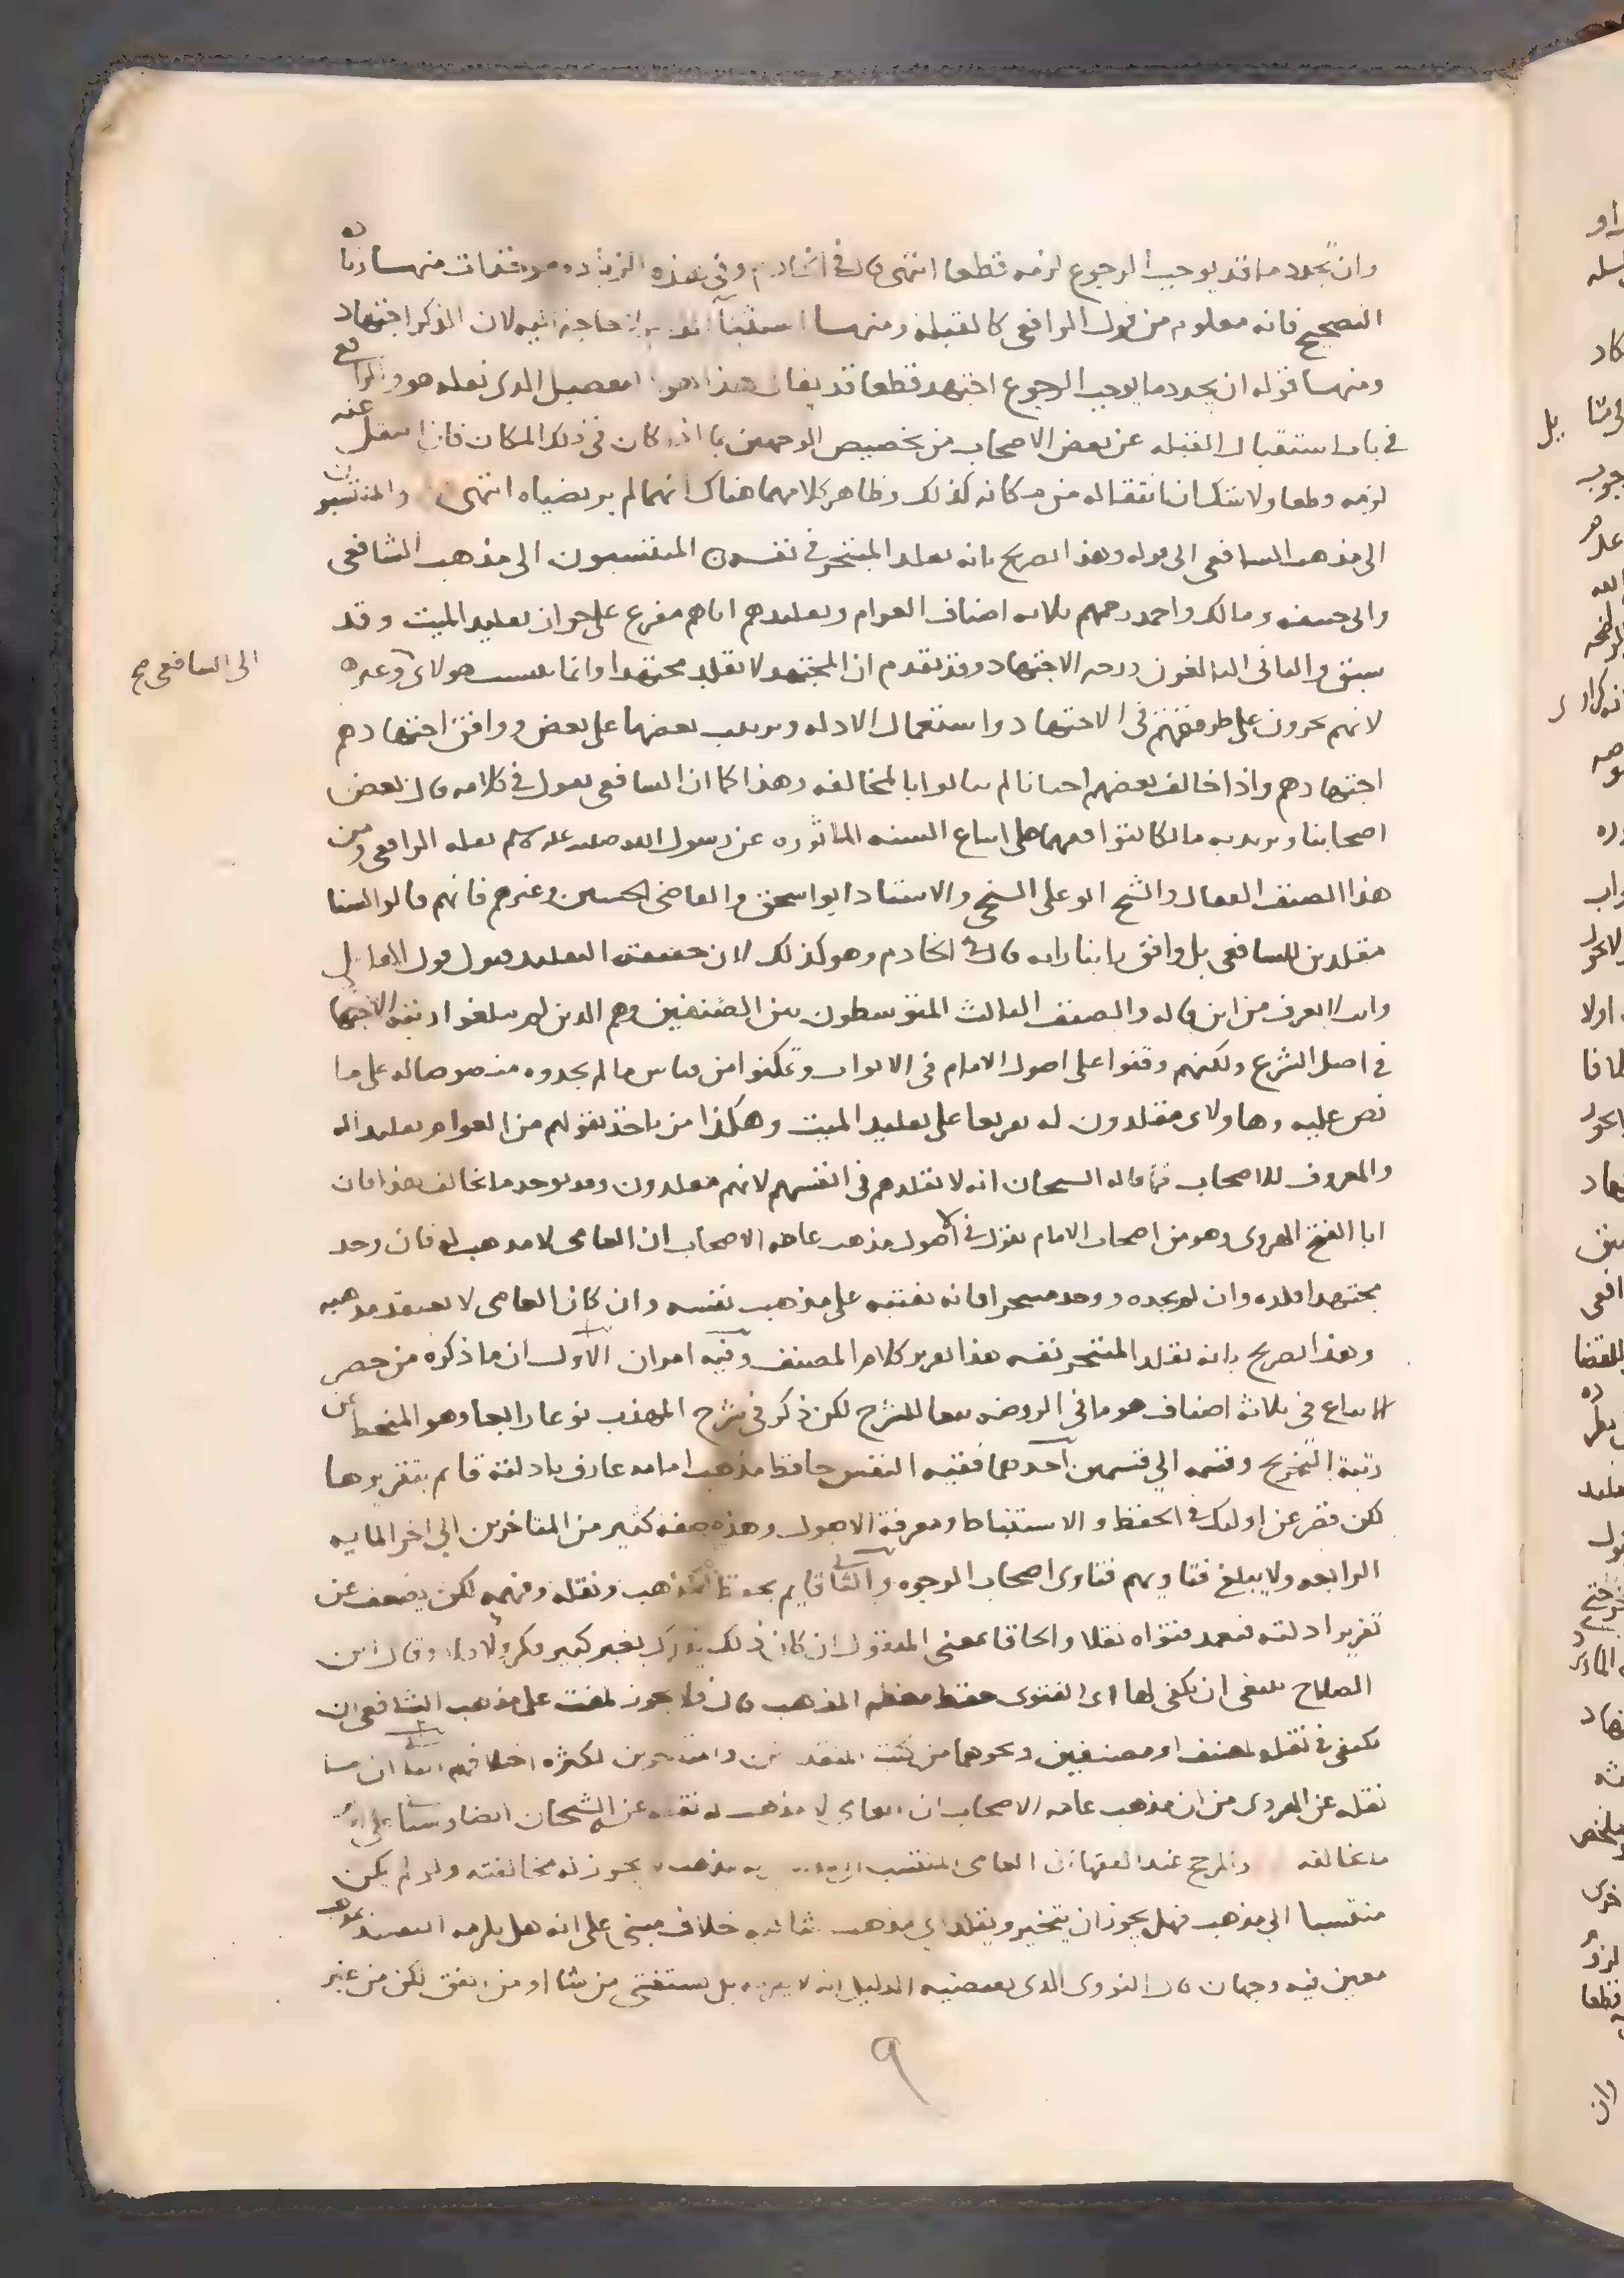 وان تجدد ما قد يوجب الرجوع لزمه قطعا انتهى قال في الخادم وفي هذه الزيادة موافقات منها زيادة
التصحيح فانه معلوم من قول الرافعي كالقبلة ومنها استثنا لا حاجة اليه لان الذكر اجتهاد
ومنها قوله ان تجدد ما يوجب الرجوع اجتهد قطعا قد يقال هذا هو التفصيل الذي نقله هو والرافعي
في باب استقبال القبله عن بعض الاصحاب من تخصيص الوجهين بما اذا كان في ذلك المكان فان انتقل عنه
لزمه قطعا ولا شك ان انتقاله من مكانه كذلك وظاهر كلامهما هناك انهما لم يرتضياه انتهى والمنتسبون
الى مذهب الشافعي الى قوله وهذا تصريح بانه يقلد المتبحر في نفسه المنتسبون الى مذهب الشافعي
وابي حنيفه ومالك واحمد رحمهم ثلاثه اصناف العوام وتقليدهم اياهم مفرع على جواز تقليد الميت وقد
سبق والثاني البالغون درجه الاجتهاد وقد تقدم ان المجتهد لا يقلد مجتهدا وانما ينتسب هولاي وغيره
الى الشافعي صح
لانهم يجرون على طريقتهم في الاجتهاد واستعمال الادله وترتيب بعضها على بعض ووافق اجتهادهم
اجتهادهم واذا خالف بعضهم احيانا لم يبالوا بالمخالفه وهذا كما ان الشافعي يقول في كلامه قال بعض
اصحابنا ويريد به مالكا لتوافقهما على اتباع السنه الماثوره عن رسول الله صلى الله عليه وسلم نقله الرافعي ومن
هذا الصنف القفال والشيخ ابو علي السنجي والاستاذ ابو اسحق والقاضي الحسين وغيرهم فانهم قالوا لسنا
مقلدين للشافعي بل وافق راينا رايه قال في الخادم وهو كذلك لان حقيقه التقليد قبول قول القايل
وانت لا تعرف من اين قاله والصنف الثالث المتوسطون بين الصنفين وهم الذين لم يبلغوا رتبه الاجتهاد
في اصل الشرع ولكنهم وقفوا على اصول الامام في الابواب وتمكنوا من قياس ما لم يجدوه منصوصا له على ما
نص عليه وهاولاي مقلدون له تفريعا على تقليد الميت وهكذا من ياخذ بقولهم من العوام تقليدا له
والمعروف للاصحاب فيما قاله الشيخان انه لا يقلدهم في انفسهم لانهم مقلدون وقد يوجد ما يخالف هذا فان
ابا الفتح الهروي وهو من اصحاب الامام يقول في الاصول مذهب عامه الاصحاب ان العامي لا مذهب له فان وجد
مجتهدا قلده وان لم يجده ووجد متبحرا فانه يفتيه على مذهب نفسه وان كان العامي لا يعتقد مذهبه
وهذا تصريح بانه يقلد المتبحر نفسه هذا تقرير كلام المصنف وفيه امران الاول ان ما ذكره من حصر
الاتباع في ثلاثة اصناف هو ما في الروضه تبعا للشرح لكن ذكر في شرح المهذب نوعا رابعا وهو المنحط عن
رتبة التخريج وقسمه الي قسمين احدهما فقيه النفس حافظ مذهب امامه عارف بادلته قايم بتقريرها
لكن قصر عن اوليك في الحفظ والاستنباط ومعرفة الاصول وهذه صفه كثير من المتاخرين الي اخر المايه
الرابعه ولا يبلغ فتاويهم فتاوى اصحاب الوجوه والثاني قايم بحفظ المذهب ونقله وفهمه لكن يضعف عن
تقرير ادلته فتعمد فتواه نقلا والحاقا بمعنى المنقول ان كان ذلك يدرك بغير كبير فكر وقال ابن
الصلاح ينبغي ان يكفي لها اي الفتوى حفظ معظم المذهب قال فلا يجوز لمفت على مذهب الشافعي ان
يكتفي في نقله بمصنف او مصنفين ونحوهما من كتب المتقدمين والمتاخرين لكثرة اختلافهم الثاني ان ما
نقله عن الهروي من ان مذهب عامه الاصحاب ان العامي لا مذهب له نقله عنه الشيخان ايضا
ما يخالفه والمرجح عند الفقها ان العامي المنتسب الي مذهب لا يجوز له مخالفته ولو لم يكن
منتسبا الي مذهب فهل يجوز ان يتخير ويقلد اي مذهب شا فيه خلاف مبني على انه هل يلزمه التقيد بمذهب
معين فيه وجهان قال النووي الذي يقتضيه الدليل انه لا يلزمه بل يستفتي من شا او من اتفق لكن من غير
٩